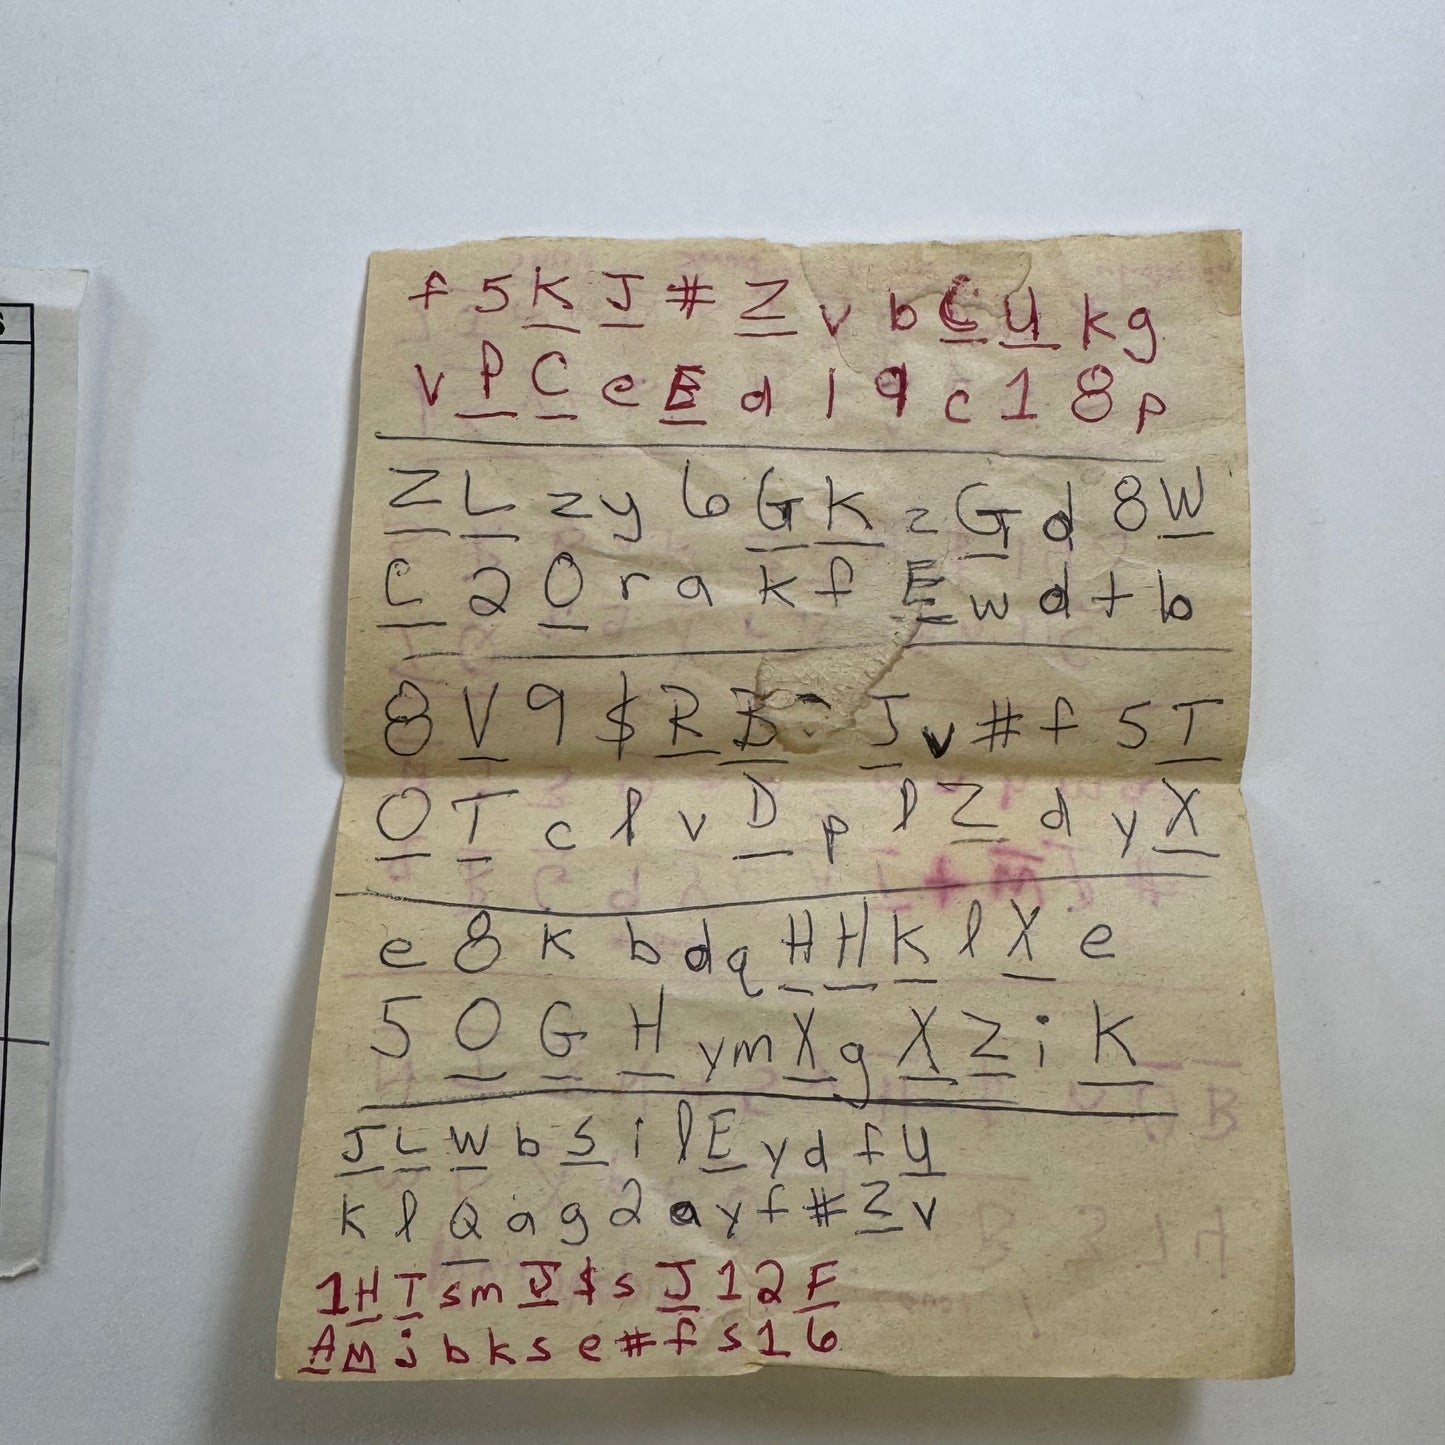 f 5 K J # Z v b C U k g
v P C e E d l 9 c 1 8 p
Z L z y 6 G K z G d 8 W
C 2 O r a k f E w d t b
8 V 9 $ R B J v # f 5 T
O T c l v D p l Z d y X
e 8 k b d q H H K l X e
5 O G H y m X g X Z i K
J L W b S i l E y d f U
k l Q a g 2 a y f # Z v
1 H T s m J $ s J 1 2 F
A M j b k s e # f s 1 6